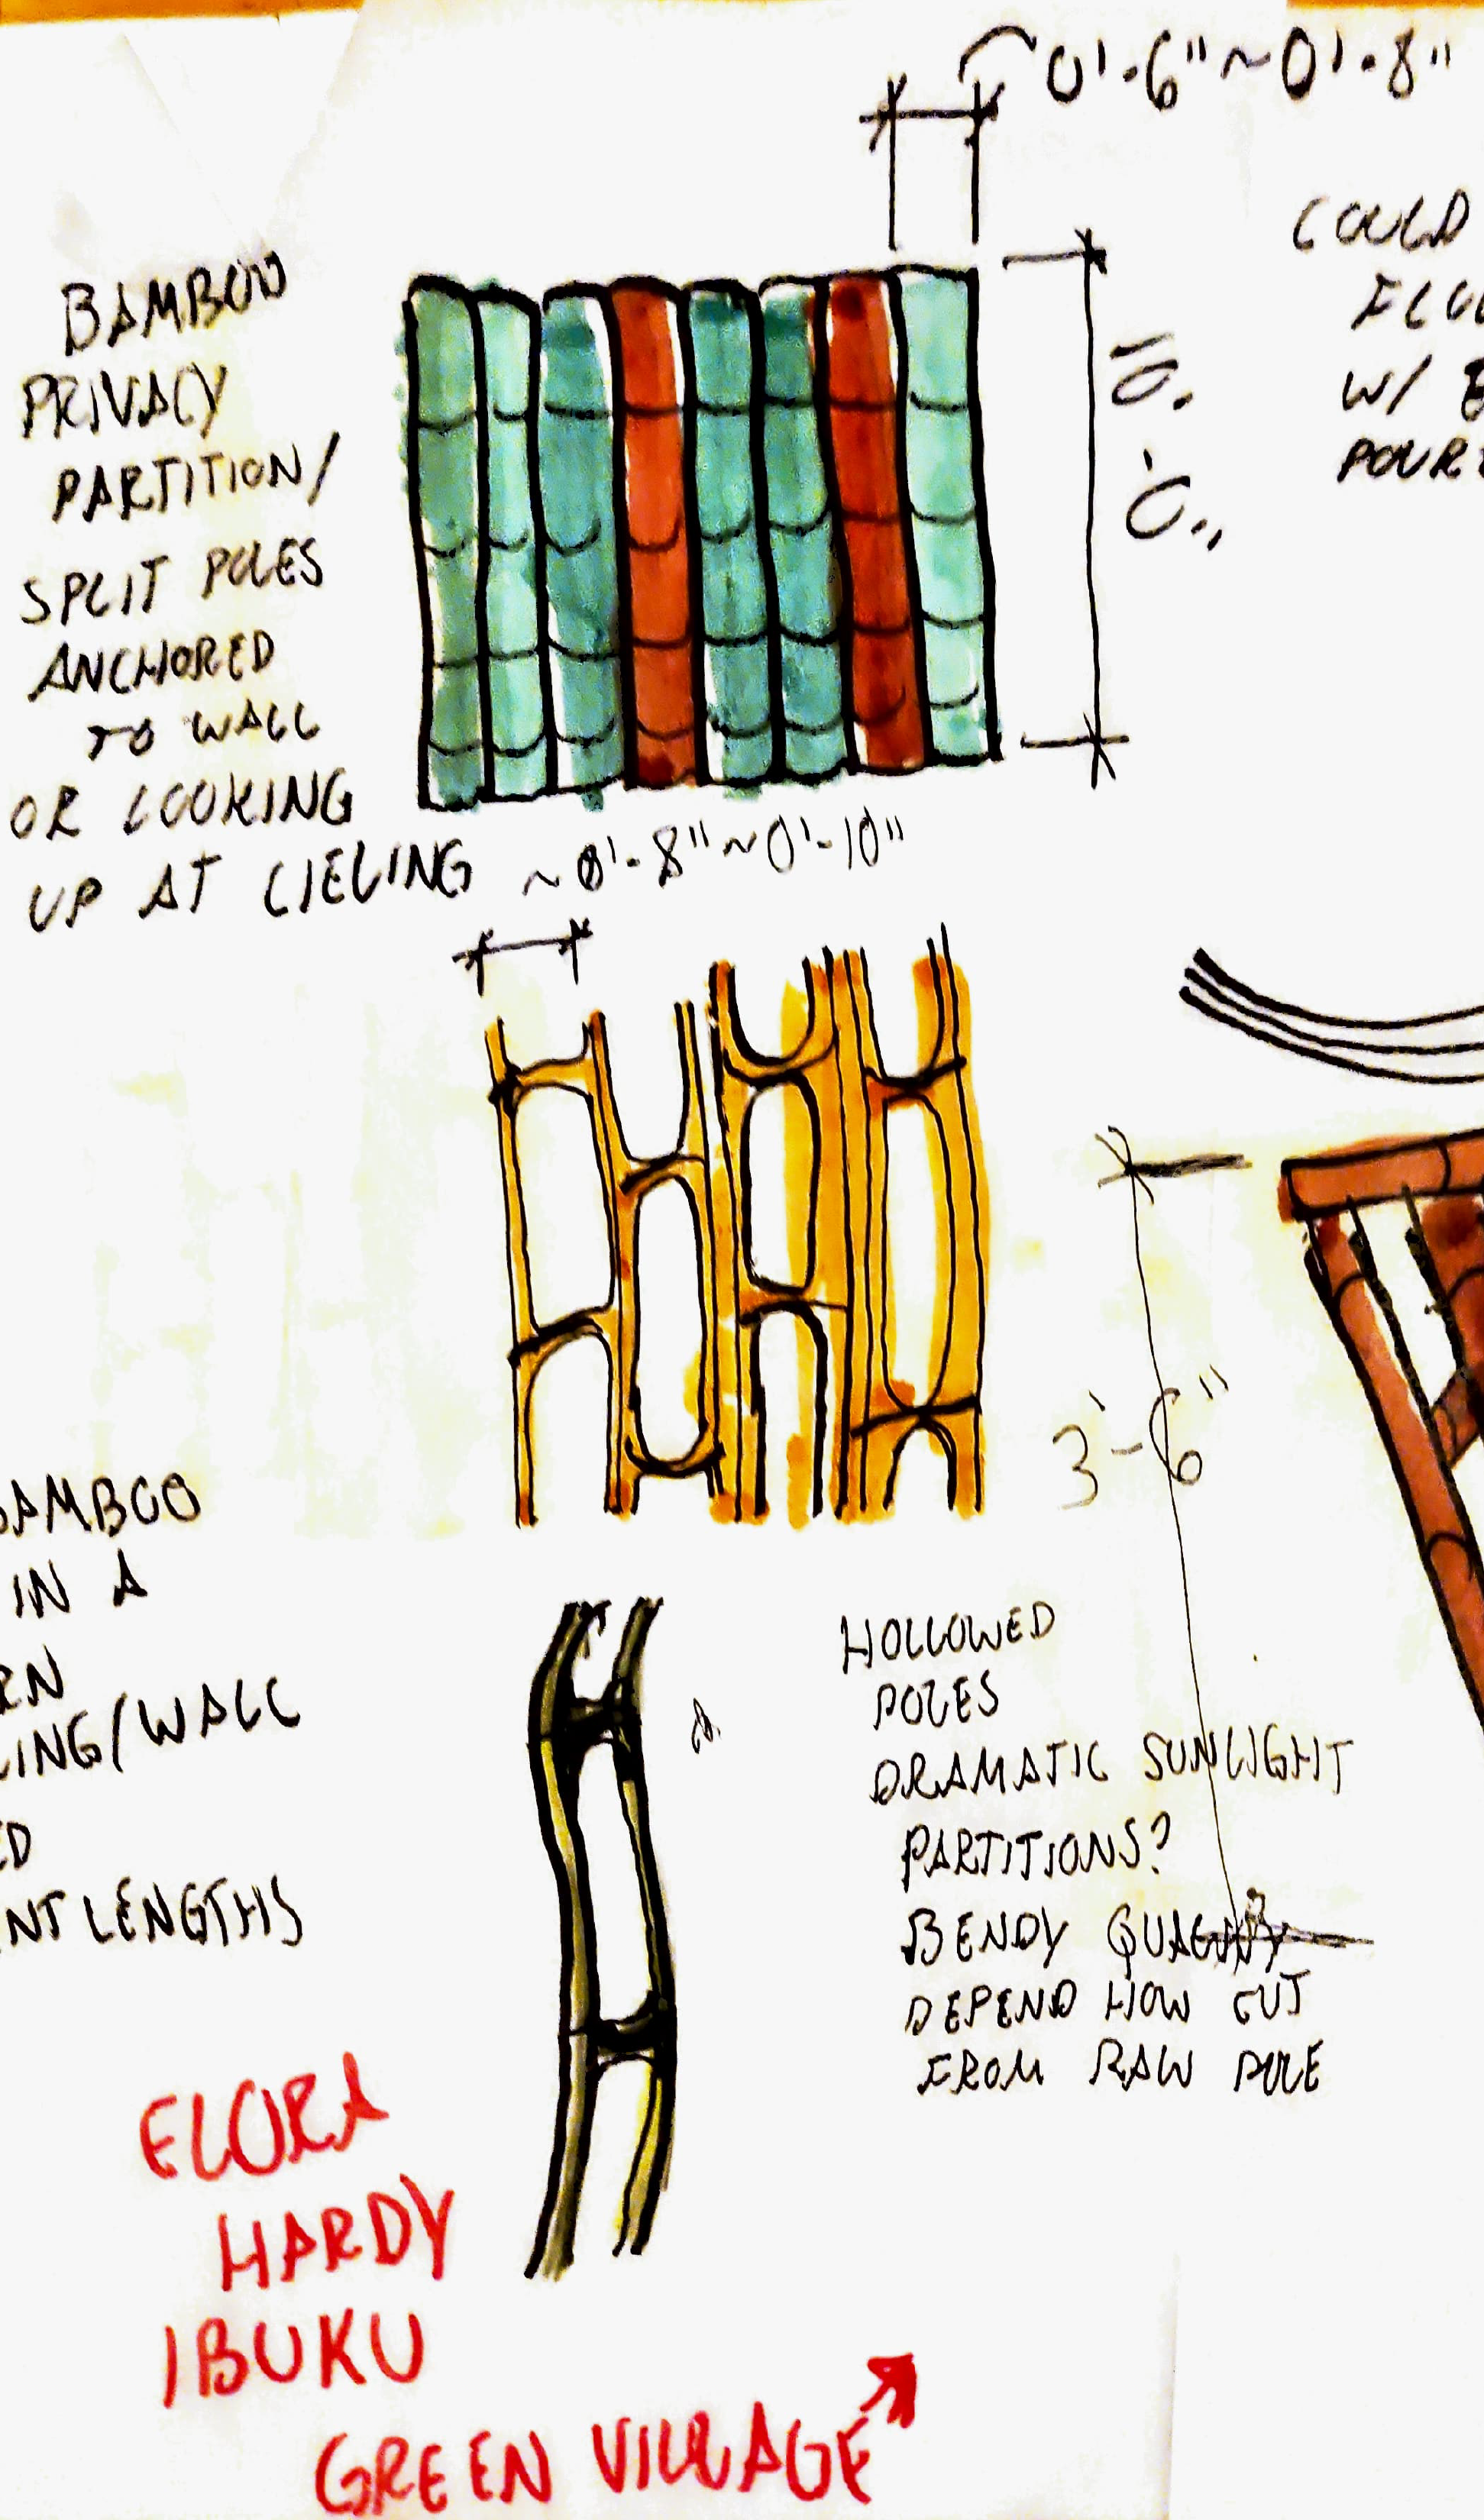 0'-6"~0'-8"
BAMBOO
PRIVACY
PARTITION/
SPLIT POLES
ANCHORED
TO WALL
OR LOOKING
UP AT CIELING
COULD
W/
POUR
~0'-8"~0'-10"
3'-6"
AMBOO
IN A
RN
LING/WALL
ED
NT LENGTHS
HOLLOWED
POLES
DRAMATIC SUNLIGHT
PARTITIONS?
BENDY QUALITY
DEPEND HOW CUT
FROM RAW POLE
ELORA
HARDY
IBUKU
GREEN VILLAGE